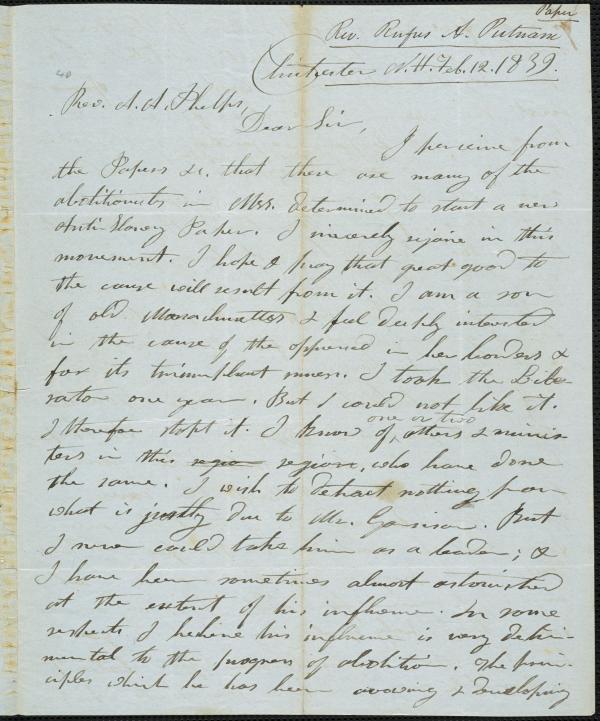 Paper
Rev. Rufus A. Putnam
Chichester N.H. Feb. 12. 1839.
40
Rev. A. A. Phelps,
Dear Sir,
I perceive from
the Papers &c. that there are many of the
abolitionists in Mss. determined to start a new
Anti-Slavery Paper. I sincerely rejoice in this
movement. I hope & pray that great good to
the cause will result from it. I am a son
of old Massachusetts & feel deeply interested
in the cause of the oppressed in her borders &
for its triumphant success. I took the Libe-
rator one year. But I could not like it.
I therefore stopt it. I know of, others & minis
one or two
ters in this region region, who have done
the same. I wish to detract nothing from
what is justly due to Mr. Garrison. But
I never could take him as a leader; &
I have been sometimes almost astonished
at the extent of his influence. In some
respects I believe his influence is very detri-
mental to the progress of abolition. The prin-
ciples which he has been avowing & developing